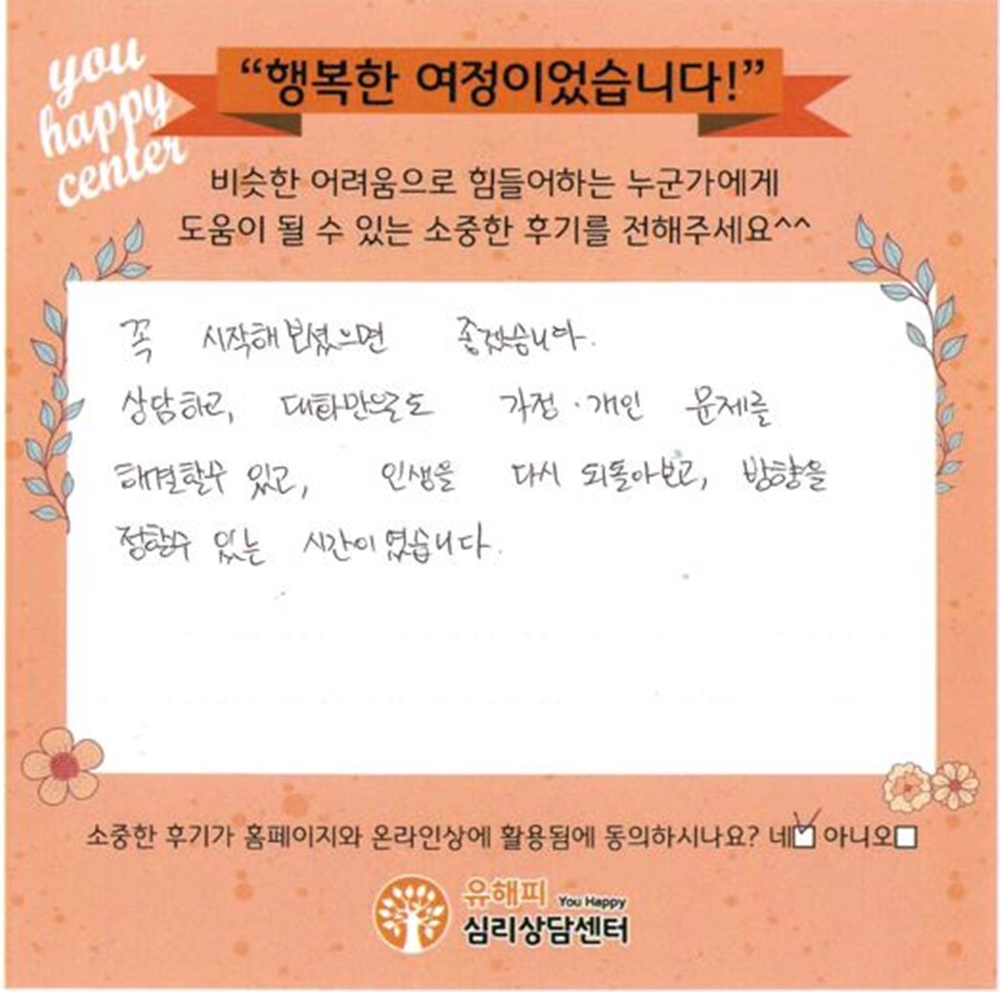 you
happy
center
“행복한 여정이었습니다!”
비슷한 어려움으로 힘들어하는 누군가에게
도움이 될 수 있는 소중한 후기를 전해주세요^^
꼭 시작해보셨으면 좋겠습니다.
상담하고, 대화만으로도 가정·개인 문제를
해결할수 있고, 인생을 다시 되돌아보고, 방향을
정할수 있는 시간이였습니다.
소중한 후기가 홈페이지와 온라인상에 활용됨에 동의하시나요? 네☑ 아니오☐
유해피 You Happy
심리상담센터